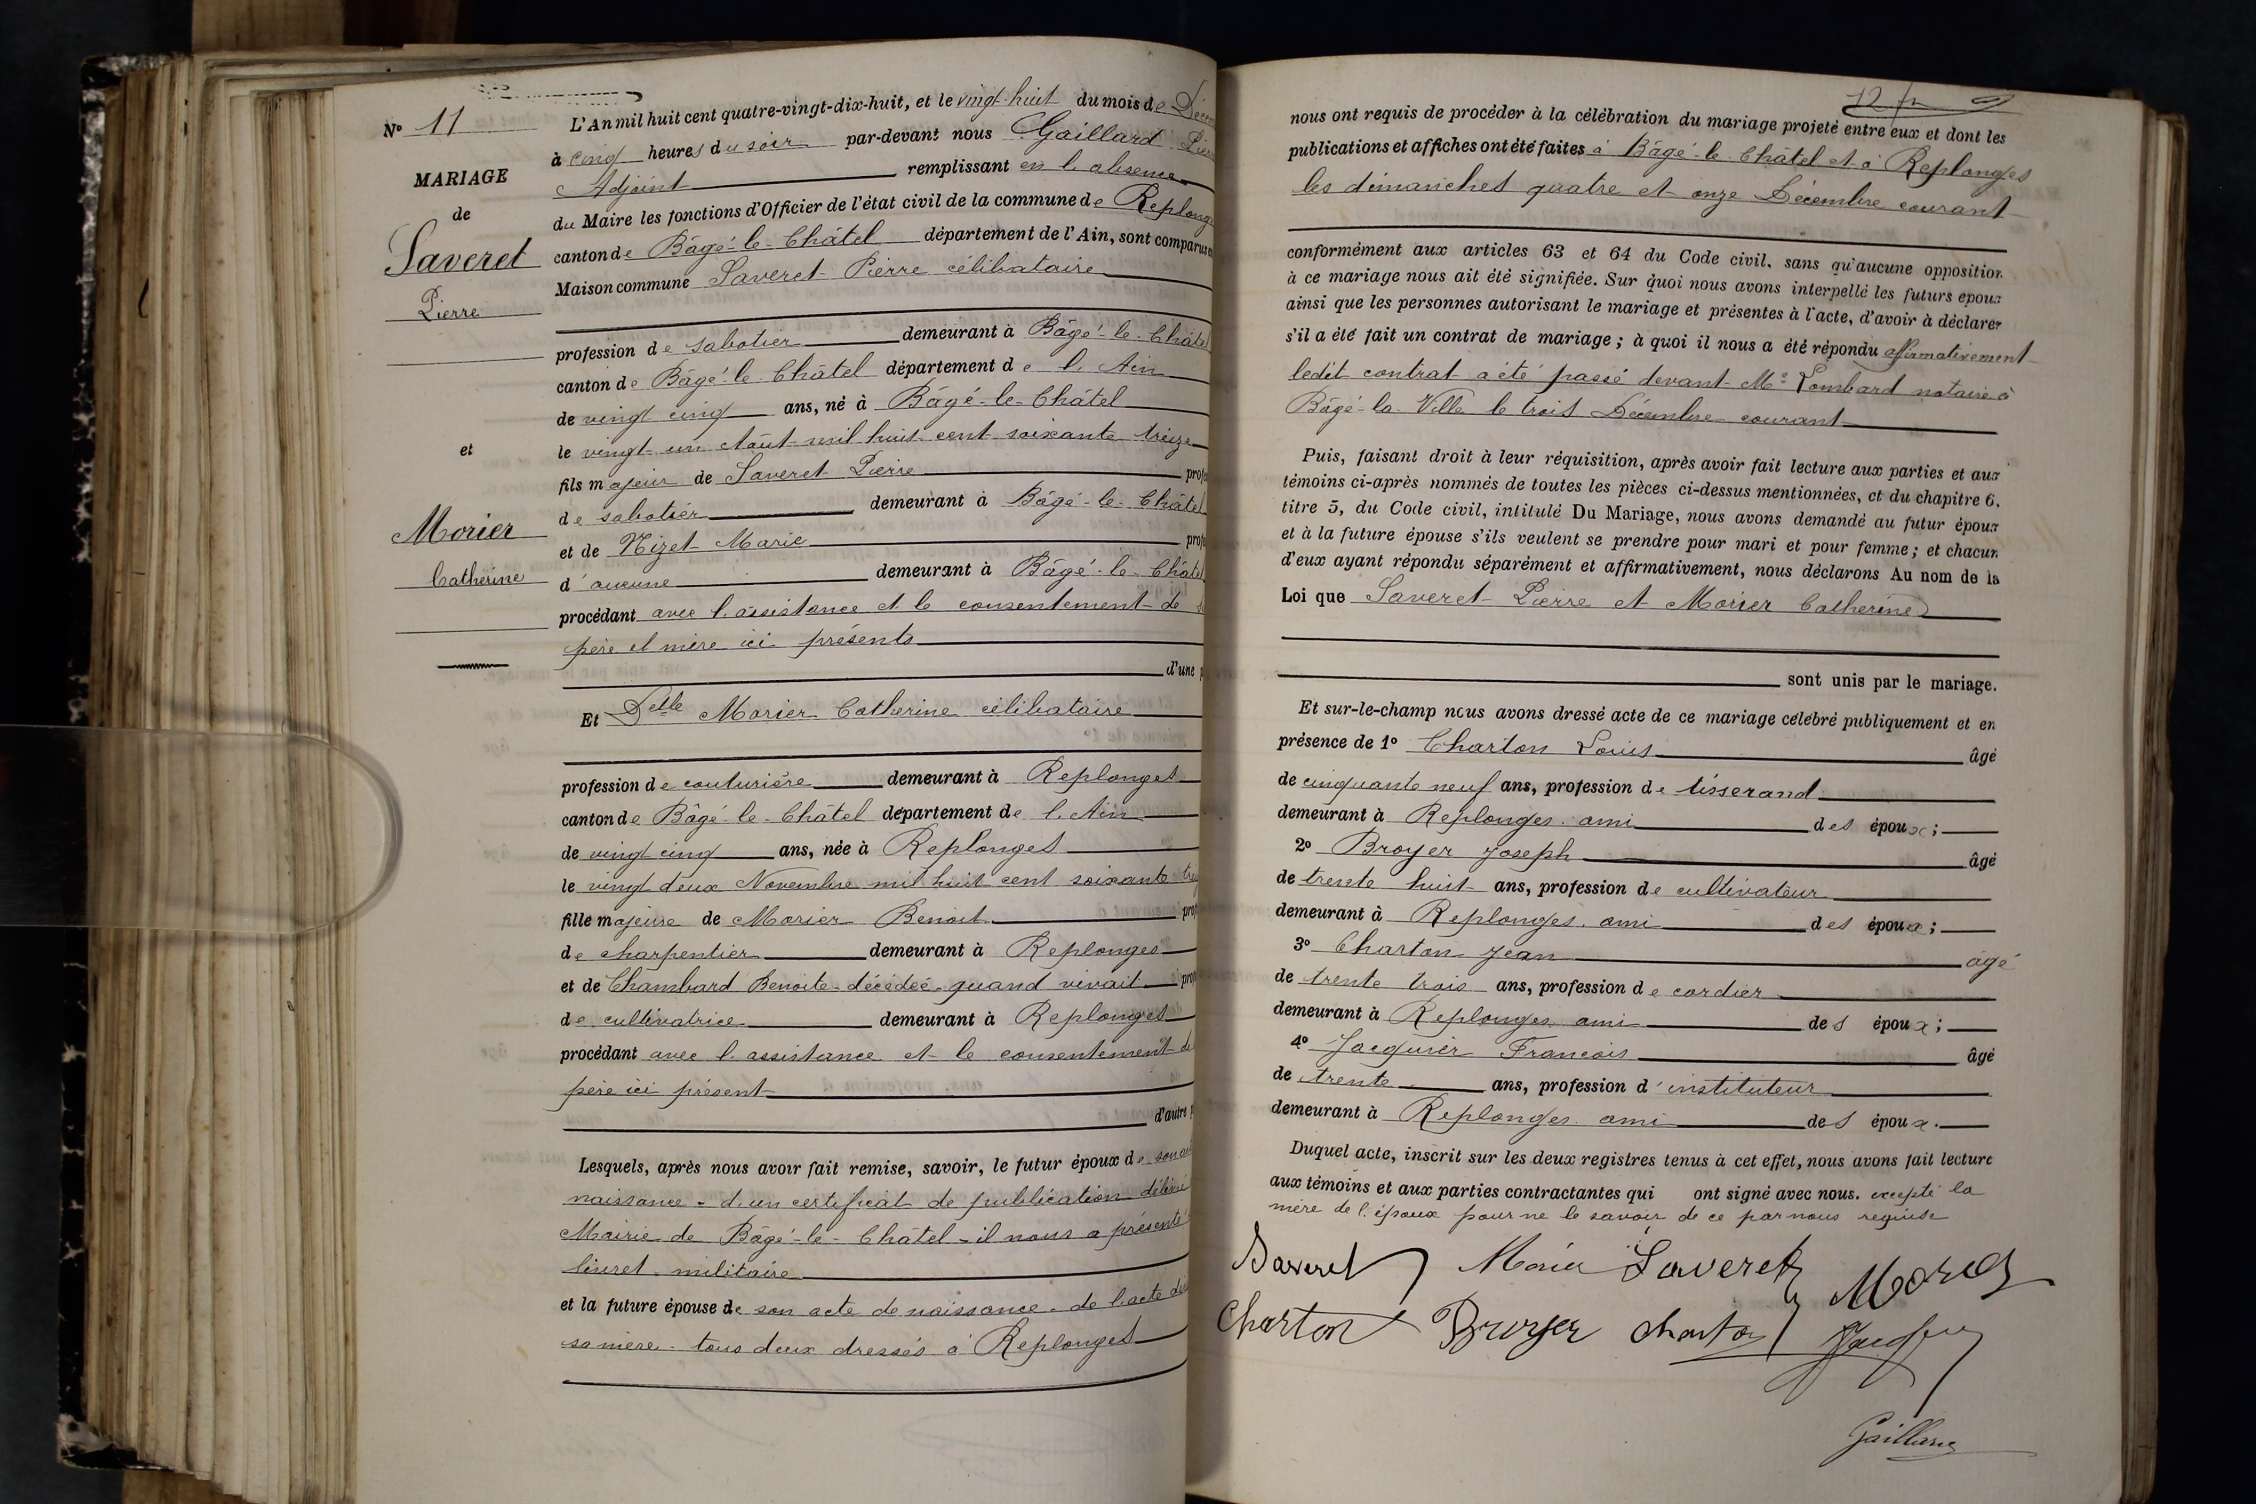 N° 11
MARIAGE
de
Saveret
Pierre
et
Morier
Catherine
L'An mil huit cent quatre-vingt-dix-huit, et le vingt-huit du mois de
à cinq heures du soir par-devant nous Gaillard
Adjoint remplissant en l'absence
du Maire les fonctions d'Officier de l'état civil de la commune de Replong
canton de Bâgé-le-Châtel département de l'Ain, sont comparus
Maison commune Saveret Pierre célibataire
profession de sabotier demeurant à Bâgé-le-Châtel
canton de Bâgé-le-Châtel département de l'Ain
de vingt cinq ans, né à Bâgé-le-Châtel
le vingt-un Août mil huit cent soixante treize
fils majeur de Saveret Pierre prof
de sabotier demeurant à Bâgé-le-Châtel
et de Nizet Marie prof
d'aucune demeurant à Bâgé-le-Châtel
procédant avec l'assistance et le consentement de
père et mère ici présents
d'une p
Et Delle Morier Catherine célibataire
profession de couturière demeurant à Replonges
canton de Bâgé-le-Châtel département de l'Ain
de vingt cinq ans, née à Replonges
le vingt deux Novembre mil huit cent soixante
fille majeure de Morier Benoit prof
de charpentier demeurant à Replonges
et de Chambard Benoite décédée quand vivait prof
de cultivatrice demeurant à Replonges
procédant avec l'assistance et le consentement de
père ici présent
d'autre p
Lesquels, après nous avoir fait remise, savoir, le futur époux de son
naissance - d'un certificat de publication
Mairie de Bâgé-le-Châtel - il nous a présenté
livret militaire
et la future épouse de son acte de naissance - de l'acte de
sa mère - tous deux dressés à Replonges
12
nous ont requis de procéder à la célébration du mariage projeté entre eux et dont les
publications et affiches ont été faites à Bâgé-le-Châtel et à Replonges
les dimanches quatre et onze Décembre courant
conformément aux articles 63 et 64 du Code civil, sans qu'aucune opposition
à ce mariage nous ait été signifiée. Sur quoi nous avons interpellé les futurs époux
ainsi que les personnes autorisant le mariage et présentes à l'acte, d'avoir à déclarer
s'il a été fait un contrat de mariage ; à quoi il nous a été répondu affirmativement
ledit contrat a été passé devant Me Lombard notaire à
Bâgé-la-Ville le trois Décembre courant
Puis, faisant droit à leur réquisition, après avoir fait lecture aux parties et aux
témoins ci-après nommés de toutes les pièces ci-dessus mentionnées, et du chapitre 6,
titre 5, du Code civil, intitulé Du Mariage, nous avons demandé au futur époux
et à la future épouse s'ils veulent se prendre pour mari et pour femme ; et chacun
d'eux ayant répondu séparément et affirmativement, nous déclarons Au nom de la
Loi que Saveret Pierre et Morier Catherine
sont unis par le mariage.
Et sur-le-champ nous avons dressé acte de ce mariage célébré publiquement et en
présence de 1° Charton Louis âgé
de cinquante neuf ans, profession de tisserand
demeurant à Replonges ami des époux ;
2° Broyer Joseph âgé
de trente huit ans, profession de cultivateur
demeurant à Replonges ami des époux ;
3° Charton Jean âgé
de trente trois ans, profession de cordier
demeurant à Replonges ami des époux ;
4° Jacquier François âgé
de trente ans, profession d'instituteur
demeurant à Replonges ami des époux.
Duquel acte, inscrit sur les deux registres tenus à cet effet, nous avons fait lecture
aux témoins et aux parties contractantes qui ont signé avec nous. excepté la
mère de l'époux pour ne le savoir de ce par nous requise
Saveret Morier Saveret Morier
Charton Broyer Charton
Gaillard